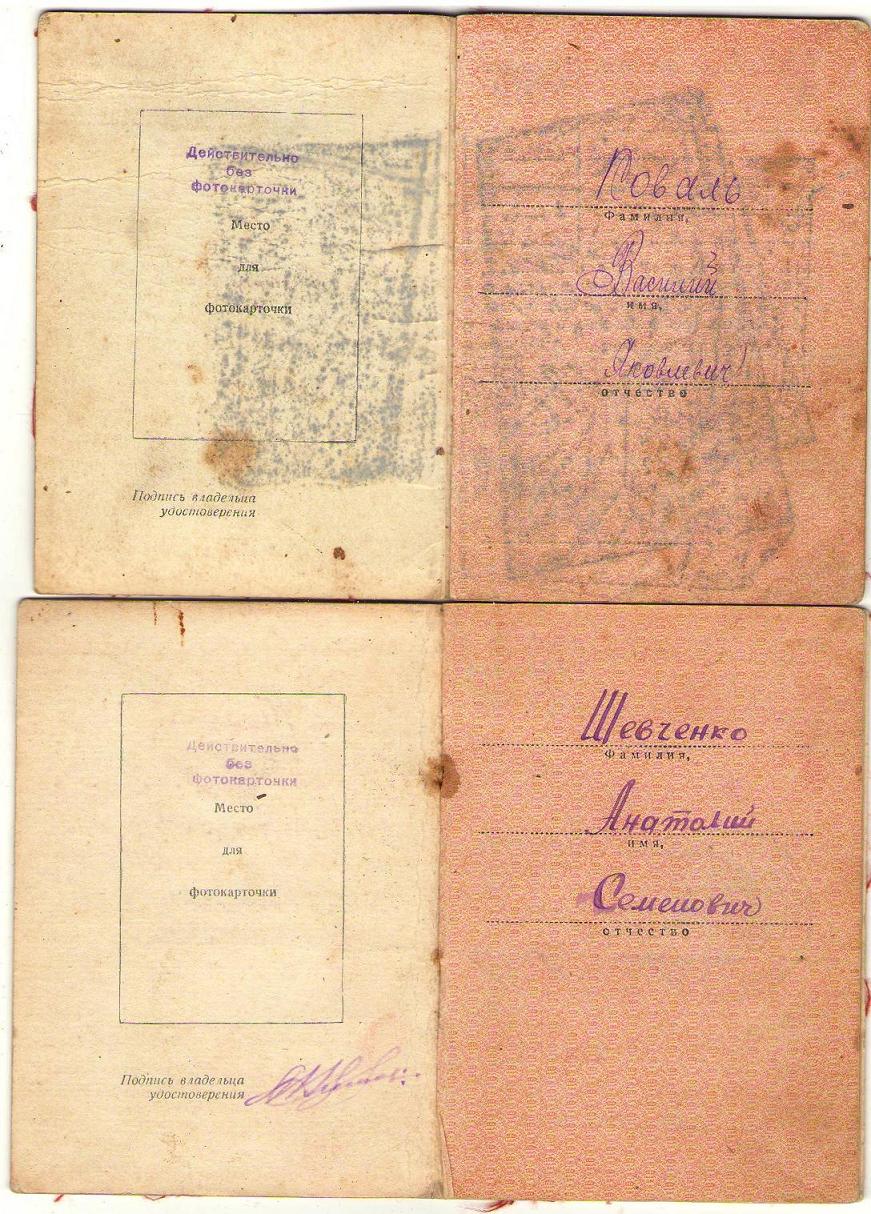 Действительно
без
фотокарточки
Место
для
фотокарточки
Подпись владельца
удостоверения
Коваль
Фамилия,
Василий
имя,
Яковлевич
отчество
Действительно
без
фотокарточки
Место
для
фотокарточки
Подпись владельца
удостоверения
Шевченко
Фамилия,
Анатолий
имя,
Семенович
отчество